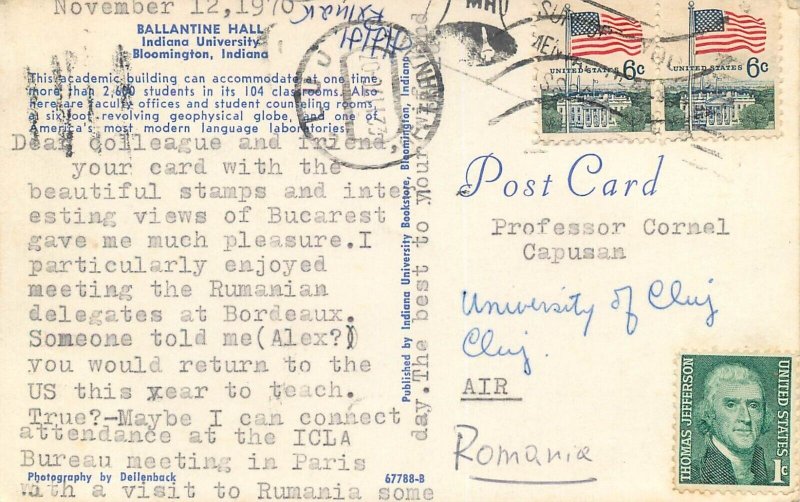 November 12,1970
BALLANTINE HALL
Indiana University
Bloomington, Indiana
This academic building can accommodate at one time
more than 2,600 students in its 104 classrooms. Also
here are faculty offices and student counseling rooms,
a six-foot revolving geophysical globe, and one of
America's most modern language laboratories.
Dear colleague and friend,
your card with the
beautiful stamps and inte
esting views of Bucarest
gave me much pleasure.I
particularly enjoyed
meeting the Rumanian
delegates at Bordeaux.
Someone told me(Alex?)
you would return to the
US this year to teach.
True?-Maybe I can connect
attendance at the ICLA
Bureau meeting in Paris
with a visit to Rumania some
day.The best to your
Photography by Dellenback
67788-B
Published by Indiana University Bookstore, Bloomington, Indiana
UNITED STATES 6c
UNITED STATES 6c
Post Card
Professor Cornel
Capusan
University of Cluj
Cluj.
AIR
Romania
THOMAS JEFFERSON
UNITED STATES
1c